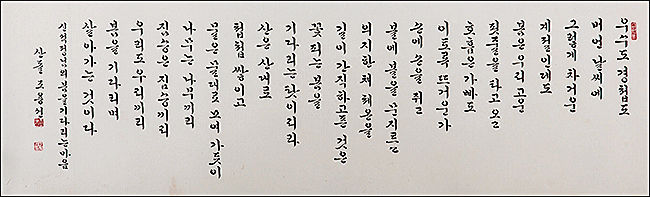 우수도 경칩도
머언 날씨에
그렇게 차거운
계절인데도
봄은 우리 고운
핏줄을 타고 오고
호흡은 가빠도
이토록 뜨거운가
손에 손을 쥐고
볼에 볼을 문지르고
의지한 채 체온을
길이 간직하고픈 것은
꽃 피는 봄을
기다리는 탓이리라
산은 산대로
첩첩 쌓이고
물은 물대로 모여 가듯이
나무는 나무끼리
짐승은 짐승끼리
우리도 우리끼리
봄을 기다리며
살아가는 것이다
신석정님의 봄을 기다리는 마음
산돌 조용선